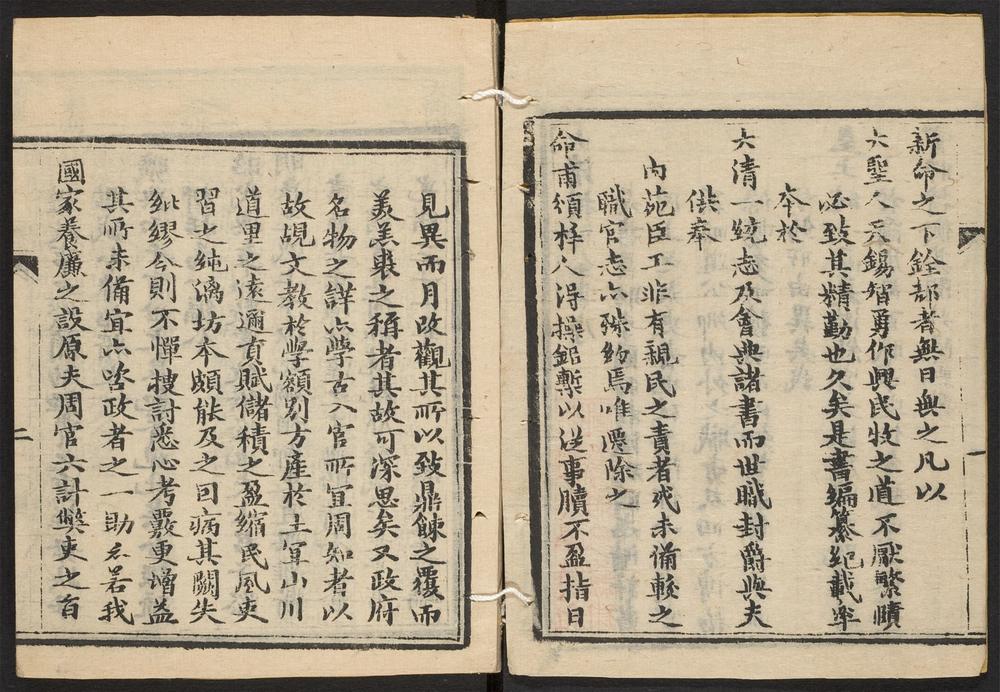 新命之下銓部者無日無之凡以
大聖人天錫智勇作興民牧之道不厭繁賾
必致其精勤也久矣是書編纂紀載率
本於
大清一統志及會典諸書而世職封爵與夫
供奉
內苑臣工非有親民之責者或未備較之
職官志六殊約焉唯遷除之
命甫頒梓人得操鉛槧以從事牘不盈指日
見異而月改觀其所以致鼎餗之覆而
美羔裘之稱者其故可深思矣又政府
名物之詳六學古入官所宜周知者以
故覘文教於學額別方產於土宜山川
道里之遠邇貢賦儲積之盈縮民風吏
習之純漓坊本頗能及之曰病其闕失
紕繆今則不憚搜討悉心考覈更增益
其所未備宜六咨政者之一助也若我
國家養廉之設原夫周官六計獘吏之旨
一
二